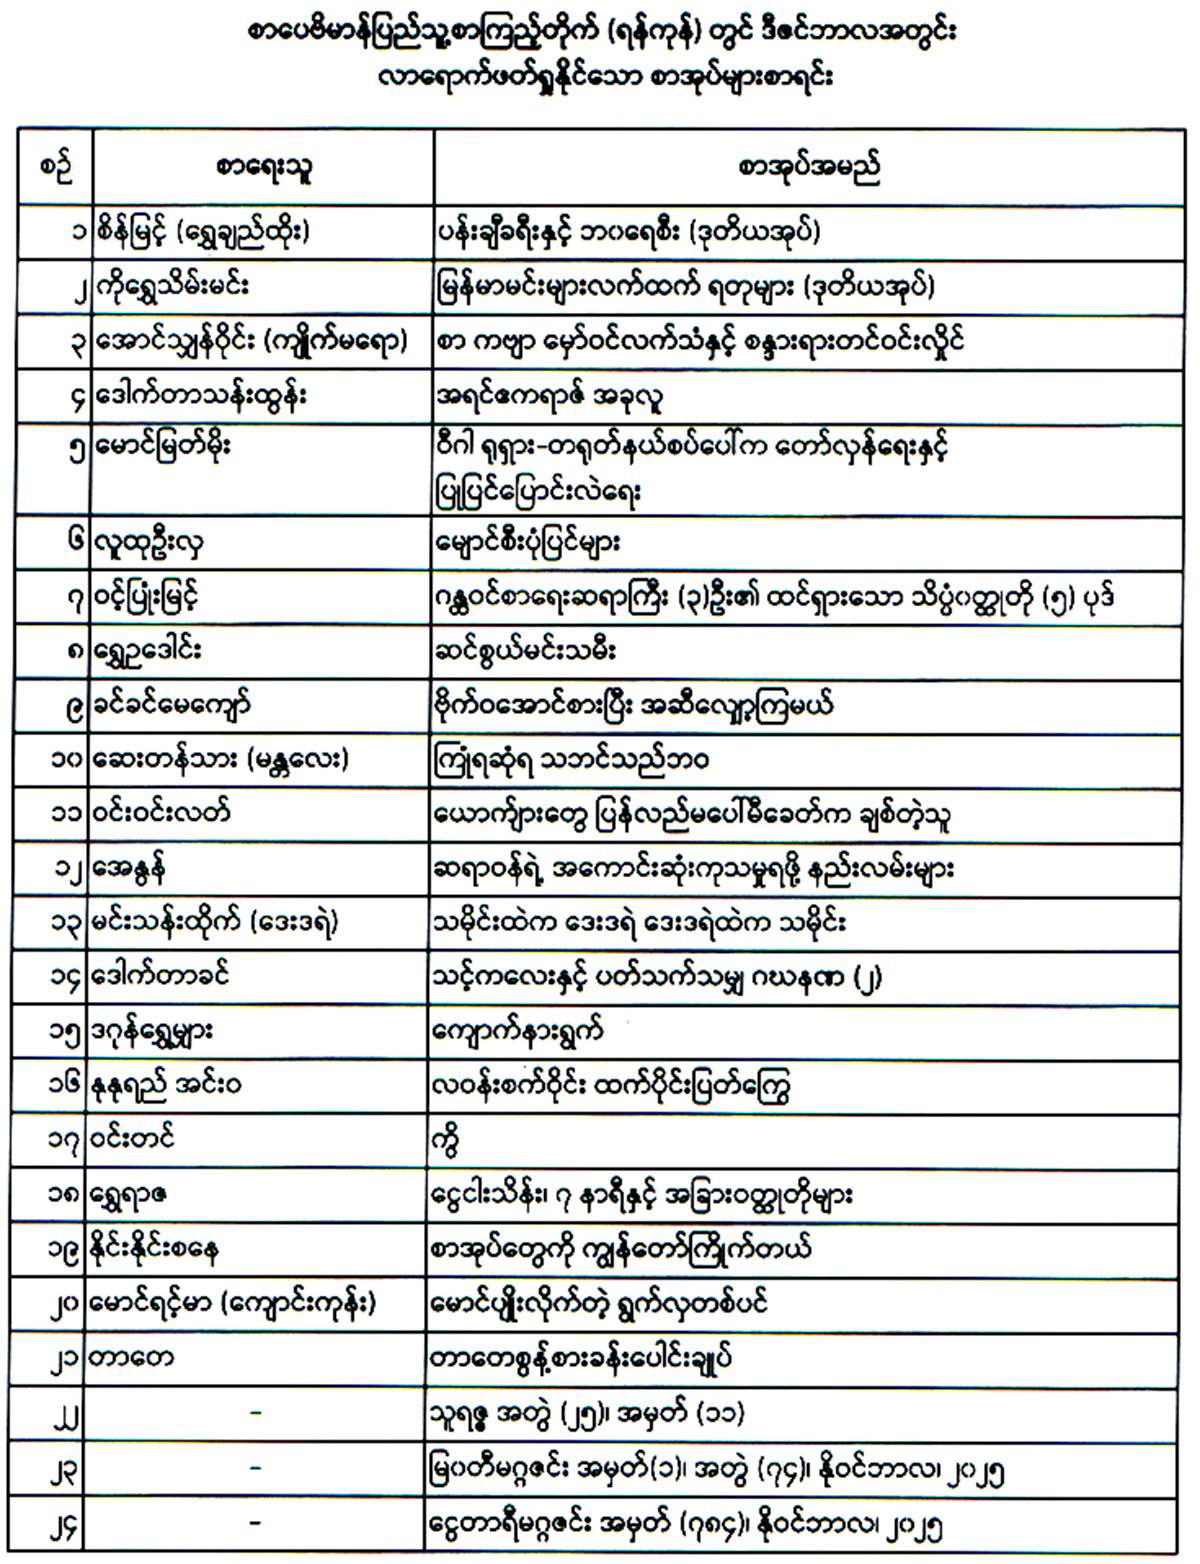 စာပေဗိမာန်ပြည်သူ့စာကြည့်တိုက် (ရန်ကုန်) တွင် ဒီဇင်ဘာလအတွင်း
လာရောက်ဖတ်ရှုနိုင်သော စာအုပ်များစာရင်း
စဉ် စာရေးသူ စာအုပ်အမည်
၁ စိန်မြင့် (ရွှေချည်ထိုး) ပန်းချီခရီးနှင့် ဘဝရေစီး (ဒုတိယအုပ်)
၂ ကိုရွှေသိမ်းမင်း မြန်မာမင်းများလက်ထက် ရတုများ (ဒုတိယအုပ်)
၃ အောင်သျှန်ဝိုင်း (ကျိုက်မရော) စာ ကဗျာ မှော်ဝင်လက်သံနှင့် စန္ဒားရားတင်ဝင်းလှိုင်
၄ ဒေါက်တာသန်းထွန်း အရင်ဧကရာဇ် အခုလူ
၅ မောင်မြတ်မိုး ဝီဂါ ရုရှား-တရုတ်နယ်စပ်ပေါ်က တော်လှန်ရေးနှင့်
ပြုပြင်ပြောင်းလဲရေး
၆ လူထုဦးလှ မျောင်စီးပုံပြင်များ
၇ ဝင့်ပြုံးမြင့် ဂန္ထဝင်စာရေးဆရာကြီး (၃)ဦး၏ ထင်ရှားသော သိပ္ပံဝတ္ထုတို (၅) ပုဒ်
၈ ရွှေဥဒေါင်း ဆင်စွယ်မင်းသမီး
၉ ခင်ခင်မေကျော် ဗိုက်ဝအောင်စားပြီး အဆီလျှော့ကြမယ်
၁၀ ဆေးတန်သား (မန္တလေး) ကြုံရဆုံရ သဘင်သည်ဘဝ
၁၁ ဝင်းဝင်းလတ် ယောက်ျားတွေ ပြန်လည်မပေါ်မီခေတ်က ချစ်တဲ့သူ
၁၂ အေနွန် ဆရာဝန်ရဲ့ အကောင်းဆုံးကုသမှုရဖို့ နည်းလမ်းများ
၁၃ မင်းသန်းထိုက် (ဒေးဒရဲ) သမိုင်းထဲက ဒေးဒရဲ ဒေးဒရဲထဲက သမိုင်း
၁၄ ဒေါက်တာခင် သင့်ကလေးနှင့် ပတ်သက်သမျှ ဂဃနဏ (၂)
၁၅ ဒဂုန်ရွှေမျှား ကျောက်နားရွက်
၁၆ နုနုရည် အင်းဝ လဝန်းစက်ဝိုင်း ထက်ပိုင်းပြတ်ကြွေ
၁၇ ဝင်းတင် ကွိ
၁၈ ရွှေရာဇ ငွေငါးသိန်း၊ ၇ နာရီနှင့် အခြားဝတ္ထုတိုများ
၁၉ နိုင်းနိုင်းစနေ စာအုပ်တွေကို ကျွန်တော်ကြိုက်တယ်
၂၀ မောင်ရင့်မာ (ကျောင်းကုန်း) မောင်ပျိုးလိုက်တဲ့ ရွက်လှတစ်ပင်
၂၁ တာတေ တာတေစွန့်စားခန်းပေါင်းချုပ်
၂၂ - သူရဇ္ဇ အတွဲ (၂၅)၊ အမှတ် (၁၁)
၂၃ - မြဝတီမဂ္ဂဇင်း အမှတ်(၁)၊ အတွဲ (၇၄)၊ နိုဝင်ဘာလ၊ ၂၀၂၅
၂၄ - ငွေတာရီမဂ္ဂဇင်း အမှတ် (၇၈၄)၊ နိုဝင်ဘာလ၊ ၂၀၂၅